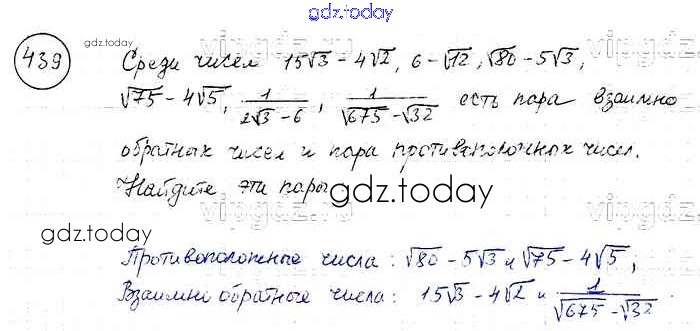 gdz.today
439
gdz.today
Среди чисел 15√3 - 4√2, 6 - √12, √80 - 5√3,
√75 - 4√5, 1/(2√3 - 6), 1/(√675 - √32) есть пара взаимно
обратных чисел и пара противоположных чисел.
Найдите эти пары.
gdz.today
gdz.today
Противоположные числа: √80 - 5√3 и √75 - 4√5,
Взаимно обратные числа: 15√3 - 4√2 и 1/(√675 - √32).